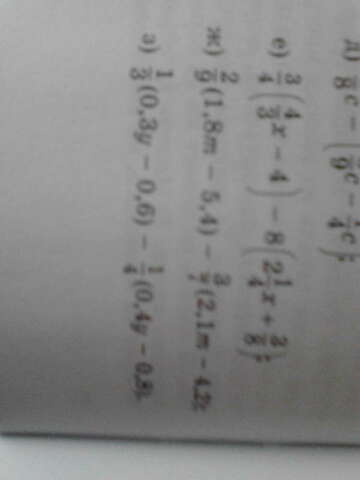 д) 7/8 c − (7/9 c − 1/4 c);
е) 3/4 (4/3 x − 4) − 8(2 1/4 x + 3/8);
ж) 2/9 (1,8m − 5,4) − 3/7 (2,1m − 4,2);
з) 1/3 (0,3y − 0,6) − 1/4 (0,4y − 0,8).